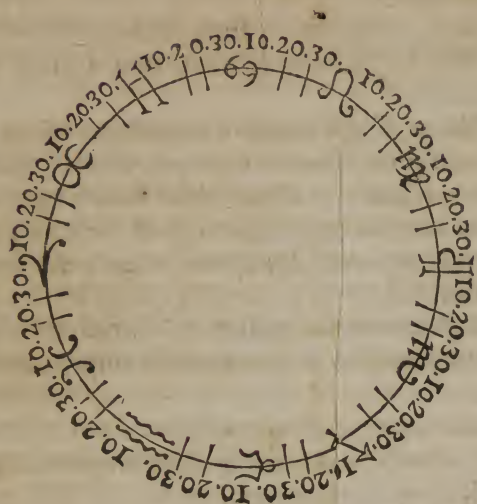 ♈ 10.20.30.
♉ 10.20.30.
♊ 10.20.30.
♋ 10.20.30.
♌ 10.20.30.
♍ 10.20.30.
♎ 10.20.30.
♏ 10.20.30.
♐ 10.20.30.
♑ 10.20.30.
♒ 10.20.30.
♓ 10.20.30.